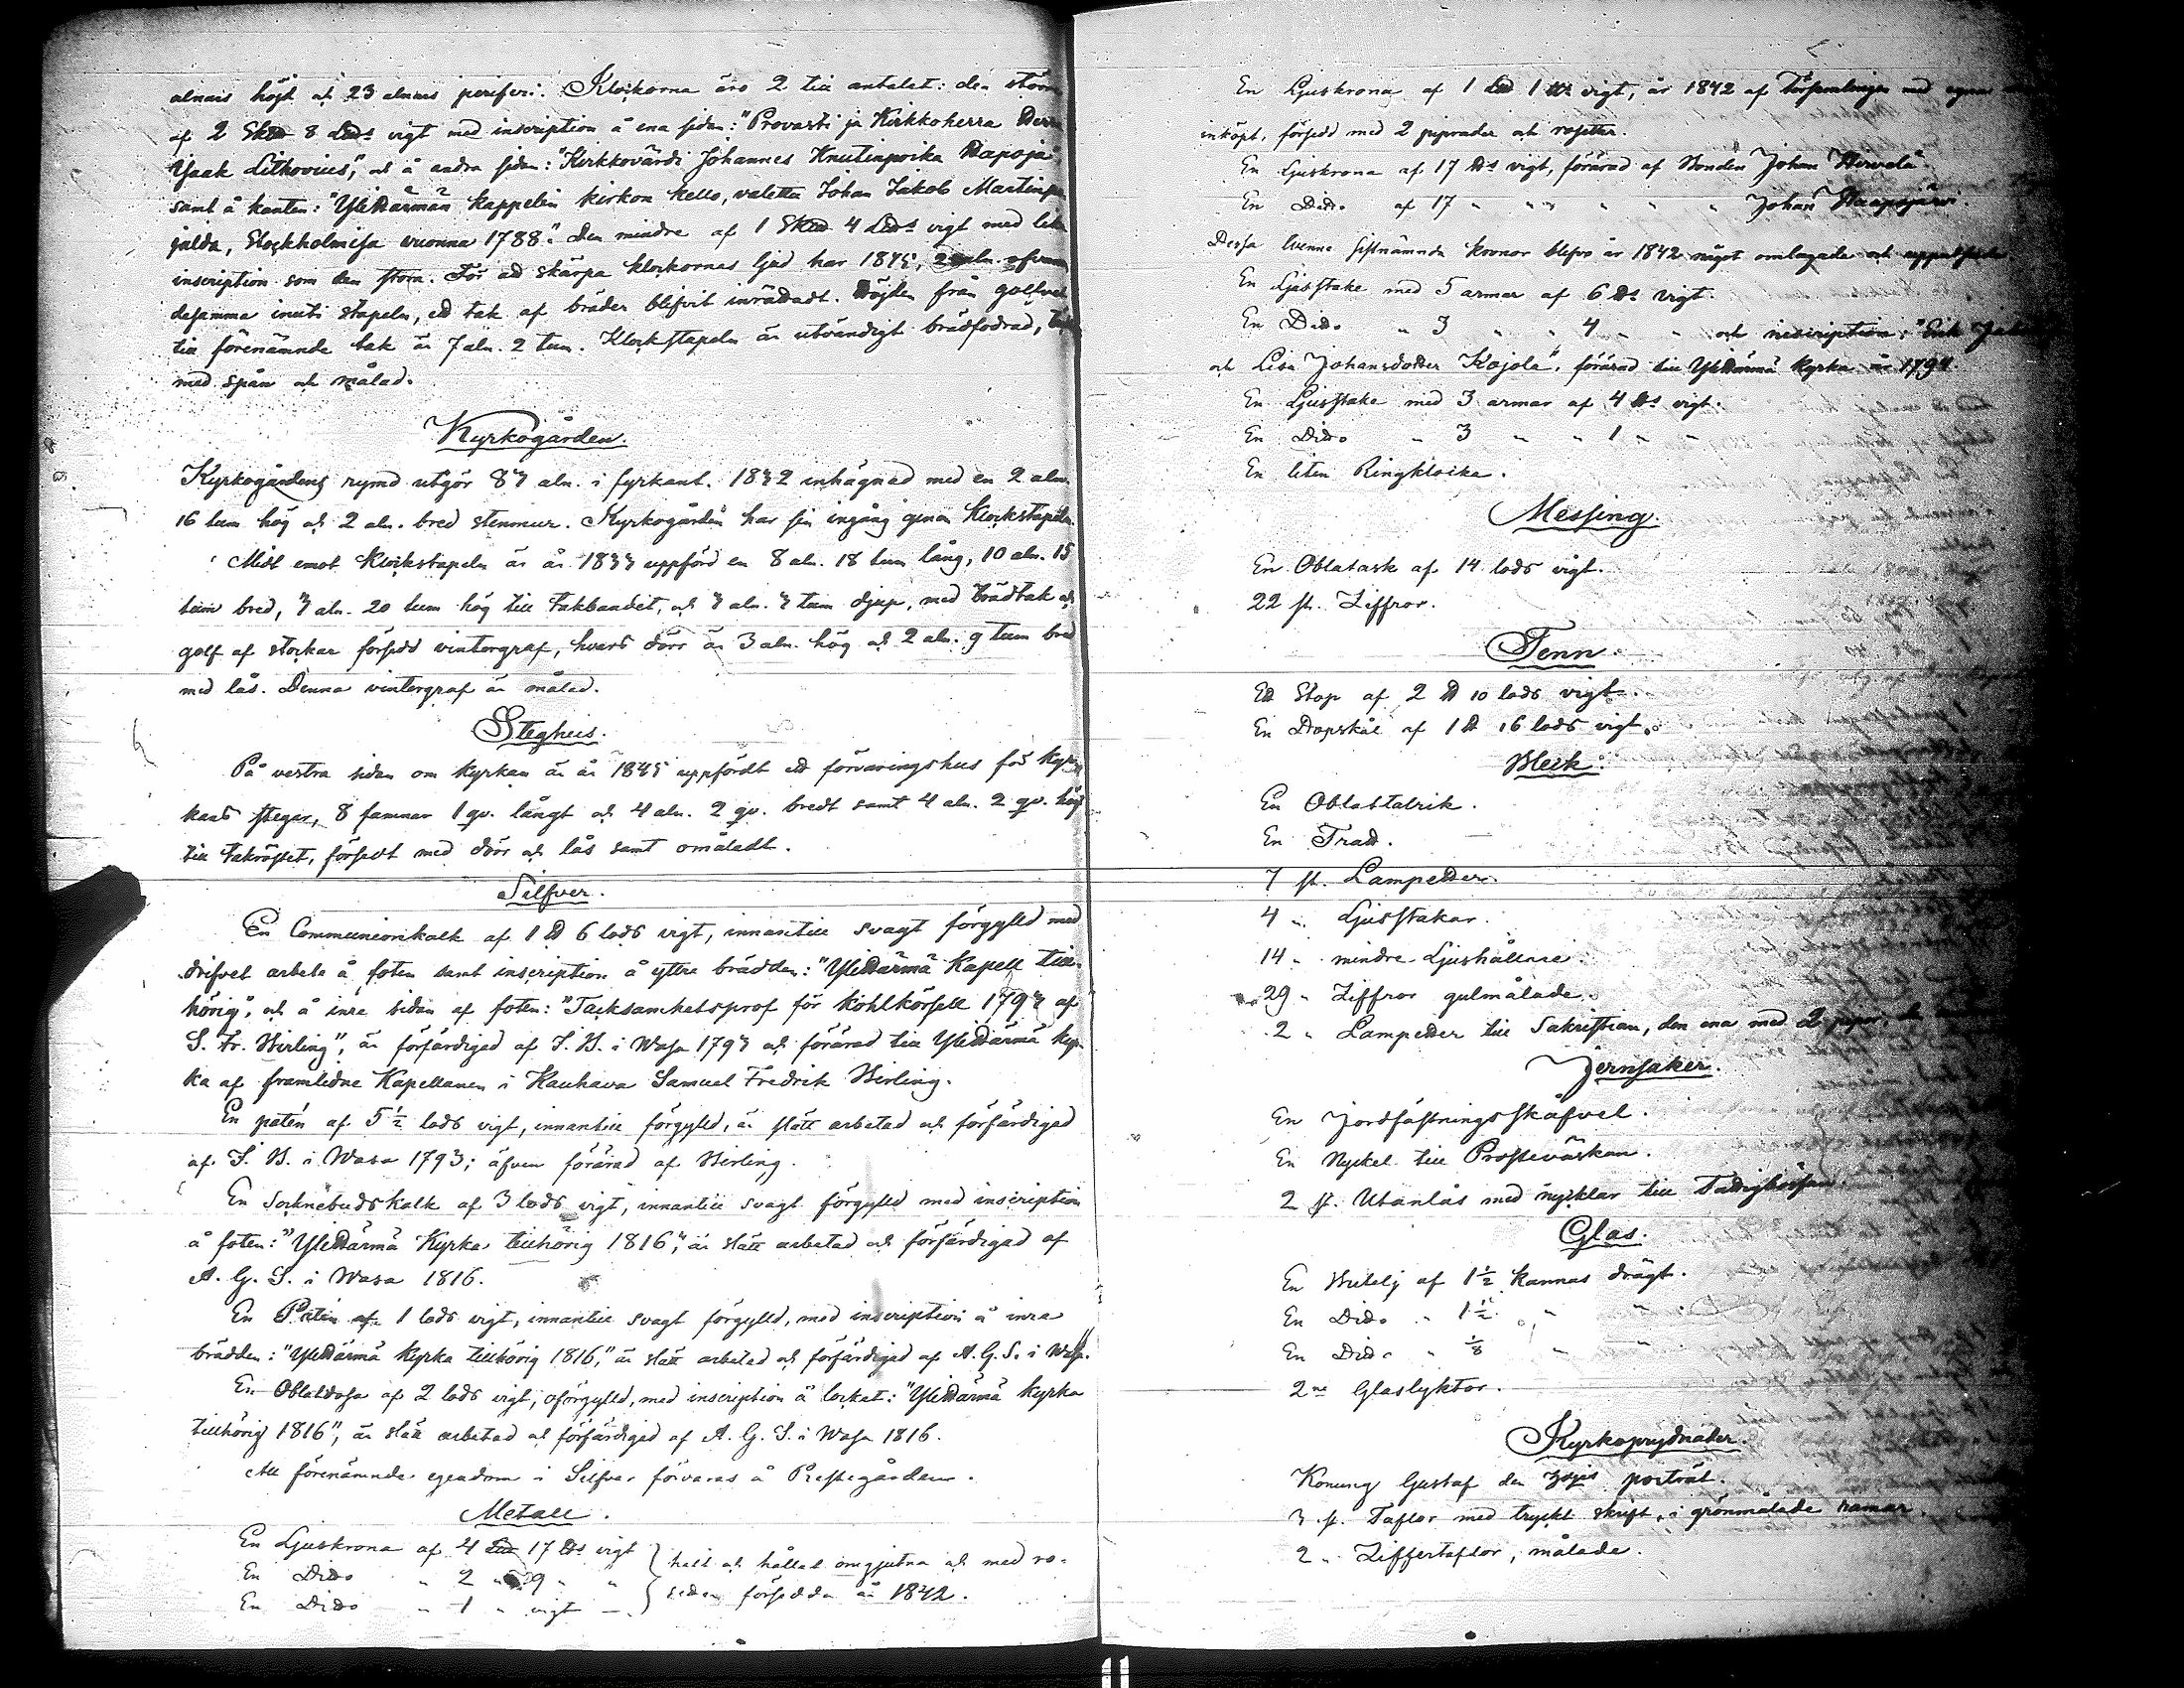 alnars höjd och 23 alnars periferi. Klockorna äro 2 till antalet: den större
af 2 Skttt 8 Lttts vigt med inscription å ena sidan: "Provasti ja Kirkkoherra Herra
Ysaak Lithovius", och å andra sidan: "Kirkkovärdi Johannes Knutinpoika Haapoja"
samt å kanten: "Ylihärmän kappelin kirkon kello, valettu Johan Jakob Martinpo
jalda, Stockholmisa vuonna 1788." Den mindre af 1 Skttt 4 Lttts vigt med lika
inscription som den stora. För att skärpa klockornas ljud har 1845, 2 aln. ofvan
desamma inuti stapeln, ett tak af bräder blifvit inrättadt. Höjden från golfvet
till förenämnde tak är 7 aln. 2 tum. Klockstapeln är utvändigt brädfodrad,
med spån och målad.
Kyrkogården.
Kyrkogårdens rymd utgör 83 aln. i fyrkant. 1832 inhägnad med en 2 aln.
16 tum hög och 2 aln. bred stenmur. Kyrkogården har sin ingång genom Klockstapeln.
Midt emot Klockstapeln är år 1833 uppförd en 8 aln. 18 tum lång, 10 aln. 15
tum bred, 3 aln. 20 tum hög till takbandet, och 3 aln. 3 tum djup, med brädtak och
golf af stockar försedd vintergraf, hvars dörr är 3 aln. hög och 2 aln. 9 tum bred
med lås. Denna vintergraf är målad.
Steghus.
På vestra sidan om kyrkan är år 1845 uppfördt ett förvaringshus för kyr
kans stegar, 8 famnar 1 qv. långt och 4 aln. 2 qv. bredt samt 4 aln. 2 qv. högt
till takröstet, försedt med dörr och lås samt omåladt.
Silfver.
En Communionkalk af 1 tt 6 lods vigt, innantill svagt förgylld med
drifvet arbete å foten samt inscription å yttre brädden: "Ylihärmä Kapell till-
hörig", och å inre sidan af foten: "Tacksamhetsprof för kohlkörsell 1793 af
S. Fr. Hirling", är förfärdigad af I. H. i Wasa 1793 och förärad till Ylihärmä kyr-
ka af framlidne Kapellanen i Kauhava Samuel Fredrik Hirling.
En patén af 5½ lods vigt, innantill förgylld, är slätt arbetad och förfärdigad
af I. H. i Wasa 1793; äfven förärad af Hirling.
En Socknebudskalk af 3 lods vigt, innantill svagt förgylld med inscription
å foten: "Ylihärmä Kyrka tillhörig 1816", är slätt arbetad och förfärdigad af
A. G. S. i Wasa 1816.
En Patén af 1 lods vigt, innantill svagt förgylld, med inscription å inra
brädden: "Ylihärmä kyrka tillhörig 1816," är slätt arbetad och förfärdigad af A. G. S. i Wasa.
En Oblatdosa af 2 lods vigt, oförgylld, med inscription å locket: "Ylihärmä kyrka
tillhörig 1816", är slätt arbetad och förfärdigad af A. G. S. i Wasa 1816.
All förenämnde egendom i Silfver förvaras å Prestegården.
Metall.
En Ljuskrona af 4 Ltt 17 tts vigt } helt och hållet omgjutna och med ro-
En Ditto " 2 " 9 " "
En Ditto " 1 " vigt —. } setter försedda år 1842.
En Ljuskrona af 1 Ltt 1 tts vigt, år 1842 af Församlingen med egna
inköpt, försedd med 2 piprader och rosetter.
En Ljuskrona af 17 tts vigt, förärad af Bonden Johan Hervelä.
En Ditto af 17 " " " " " Johan Haapojärvi.
Dessa tvenne sistnämnda kronor blefvo år 1842 något omlagade och
En Ljusstake med 5 armar af 6 tts vigt.
En Ditto " 3 " " 4 " " och inscription: "Erik
och Lisa Johansdotter Kojola", förärad till Ylihärmä kyrka år 1794.
En Ljusstake med 3 armar af 4 tts vigt.
En Ditto " 3 " " 1 " "
En liten Ringklocka.
Messing.
En Oblatask af 14 lods vigt.
22 st. Ziffror.
Tenn.
Ett Stop af 2 tt 10 lods vigt.
En Dopskål af 1 tt 16 lods vigt.
Bleck.
En Oblattalrik.
En Tratt.
7 st. Lampetter.
4 " Ljusstakar.
14 " mindre Ljushållare.
29 " Ziffror gulmålade.
2 " Lampetter till Sakristian, den ena med 2 pipor,
Jernsaker.
En Jordfästningsskåfvel.
En Nyckel till Prosteväskan.
2 st. Utanlås med nycklar till Fattigbössan.
Glas.
En Butelj af 1½ kannas drägt.
En Ditto " 1½ " "
En Ditto " ⅛ " "
2ne Glaslyktor.
Kyrkoprydnader.
Konung Gustaf den 3djes porträt.
3 st. Taflor med tryckt skrift, i grönmålade ramar.
2 " Ziffertaflor, målade.